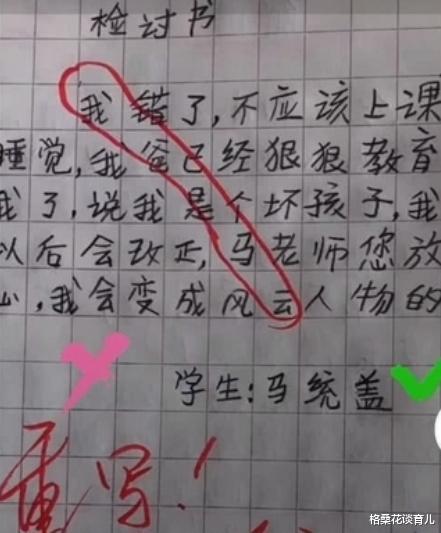 检讨书
我错了,不应该上课
睡觉,我爸已经狠狠教育
我了,说我是个坏孩子,我
以后会改正,马老师您放
心,我会变成风云人物的
学生:马统盖
重写!
格桑花谈育儿